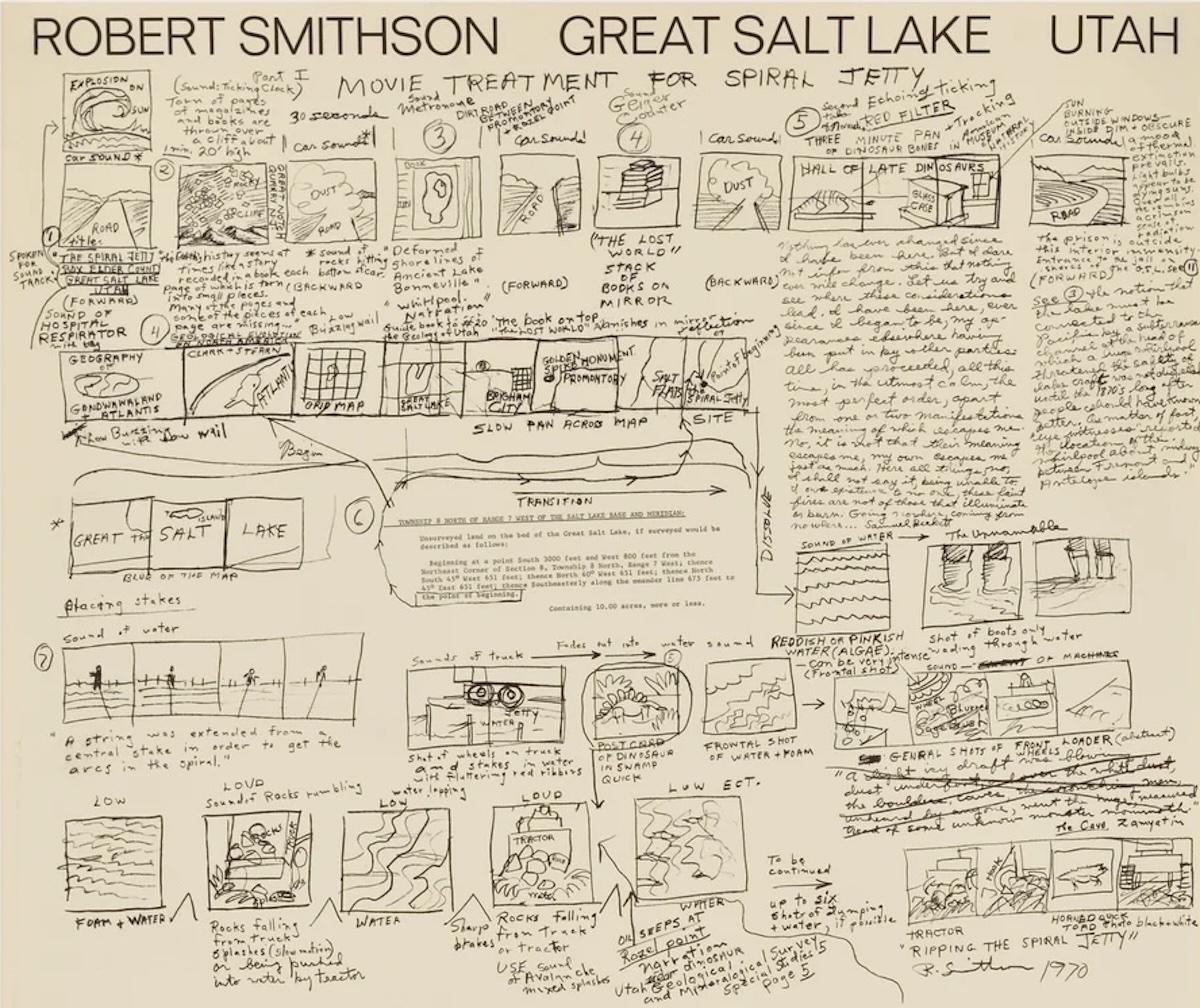 ROBERT SMITHSON GREAT SALT LAKE UTAH
MOVIE TREATMENT FOR SPIRAL JETTY
Part I
EXPLOSION ON SUN
(Sound: Ticking Clock)
Torn of pages
of magazines
and books are
thrown over
a cliff about
20' high
1 min.
30 seconds
Sound
Metronome
DIRT ROAD
BETWEEN
PROMONTORY
+ ROZEL POINT
Sound
Geiger
Counter
Echoing ticking
RED FILTER
THREE MINUTE PAN
OF DINOSAUR BONES
+ Tracking
IN American
MUSEUM
SUN
BURNING
OUTSIDE WINDOWS—
INSIDE DIM + OBSCURE
a mood
of thermal
extinction
prevails.
Light bulbs
appear to be
dying suns.
car SOUND *
2
car Sound *
3
Car Sound
4
Car Sound
5
Car Sound
ROAD
ROCKY
CLIFF
GREAT NOTCH
QUARRY NJ
DUST
ROAD
BOOK
ROAD
DUST
HALL OF LATE DINOSAURS
GLASS
CASE
ROAD
1
SPOKEN
FOR
SOUND
TRACK
title:
"THE SPIRAL JETTY
BOX ELDER COUNTY
GREAT SALT LAKE
UTAH
(FORWARD)
SOUND OF
HOSPITAL
RESPIRATOR
"the Earth's history seems at
times like a story
recorded in a book each
page of which is torn
into small pieces.
Many of the pages and
some of the pieces of each
page are missing..."
* sound of
rocks hitting
bottom of car.
(BACKWARD
Deformed
shorelines of
Ancient Lake
Bonneville".
"whirlpool"
Narration
Guide book to
the Geology of Utah
#20
(FORWARD)
"THE LOST
WORLD"
STACK
OF
BOOKS ON
MIRROR
(BACKWARD)
"the book on top
"the LOST WORLD" vanishes in mirror reflection
Nothing has ever changed since
I have been here. But I dare
not infer from this that nothing
ever will change. Let us try and
see where these considerations
lead. I have been here, ever
since I began to be, my ap-
pearances elsewhere having
been put in by other parties.
All has proceeded, all this
time, in the utmost calm, the
most perfect order, apart
from one or two manifestations
the meaning of which escapes me.
No, it is not that their meaning
escapes me, my own escapes me
just as much. Here all things, no,
I shall not say it, being unable to.
I owe existence to no one, these faint
fires are not of those that illuminate
or burn. Going nowhere, coming from
nowhere... Samuel Beckett
The Unnamable
The prison is outside
this interior immensity.
Entrance to the jail on
shores of the G.S.L. see 11
(FORWARD)
see 3 the notion that
the lake must be
connected to the
Pacific by a subterranean
channel at the head of
which a huge whirlpool
threatened the safety of
lake craft was not dispelled
until the 1870's long after
people should have known
better. As matter of fact,
"eye witnesses" reported
the location of the
whirlpool about midway
between Fremont and
Antelope islands."
4
Low
Buzzing wail
GEOGRAPHY
OF
GONDWAWALAND
+ ATLANTIS
CLARK + STEARN
ATLANTIS
GRID MAP
GREAT
SALT LAKE
BRIGHAM
CITY
GOLDEN
SPIKE MONUMENT
PROMONTORY
SALT
FLATS
Point of beginning
The
SPIRAL Jetty
SLOW PAN ACROSS MAP
SITE
Slow Buzzing
with low wail
Begin
TRANSITION
DISSOLVE
*
GREAT
SALT
ISLAND
LAKE
BLUE OF THE MAP
6
TOWNSHIP 8 NORTH OF RANGE 7 WEST OF THE SALT LAKE BASE AND MERIDIAN:
Unsurveyed land on the bed of the Great Salt Lake, if surveyed would be
described as follows:
Beginning at a point South 3000 feet and West 800 feet from the
Northeast Corner of Section 8, Township 8 North, Range 7 West; thence
South 45° West 651 feet; thence North 60° West 651 feet; thence North
45° East 651 feet; thence Southeasterly along the meander line 675 feet to
the point of beginning.
Containing 10.00 acres, more or less.
Placing stakes
7
Sound of water
"A string was extended from a
central stake in order to get the
arcs in the spiral."
SOUND OF WATER
shot of boots only
wading through water
Sounds of truck
Fades out into water sound
Jetty
WATER
Shot of wheels on truck
and stakes in water
with fluttering red ribbons
5
POST CARD
OF DINOSAUR
IN SWAMP
QUICK
FRONTAL SHOT
OF WATER + FOAM
REDDISH OR PINKISH
WATER (ALGAE).
— can be very intense
(Frontal shot)
SOUND — OF MACHINES
Blurred
GENERAL SHOTS OF FRONT LOADER (abstract)
WHEELS
The Cave, Zamyatin
LOW
FOAM + WATER
LOUD
Sound of Rocks rumbling
ROCKS
Rocks falling
from truck
splashes (slow motion)
or being pushed
into water by tractor
water lapping
LOW
WATER
Sharp
brakes
LOUD
TRACTOR
Rocks falling
from truck
or tractor
USE sound
of Avalanche
mixed splashes
LOW ECT.
WATER
OIL SEEPS AT
Rozel point
narration
for DINOSAUR
Utah Geological
and Mineralogical Survey
Special Studies 5
page 5
To be
continued
up to six
shots of dumping
+ water, if possible
TRACTOR
HORNED
TOAD photo black + white
"RIPPING THE SPIRAL JETTY"
R. Smithson 1970